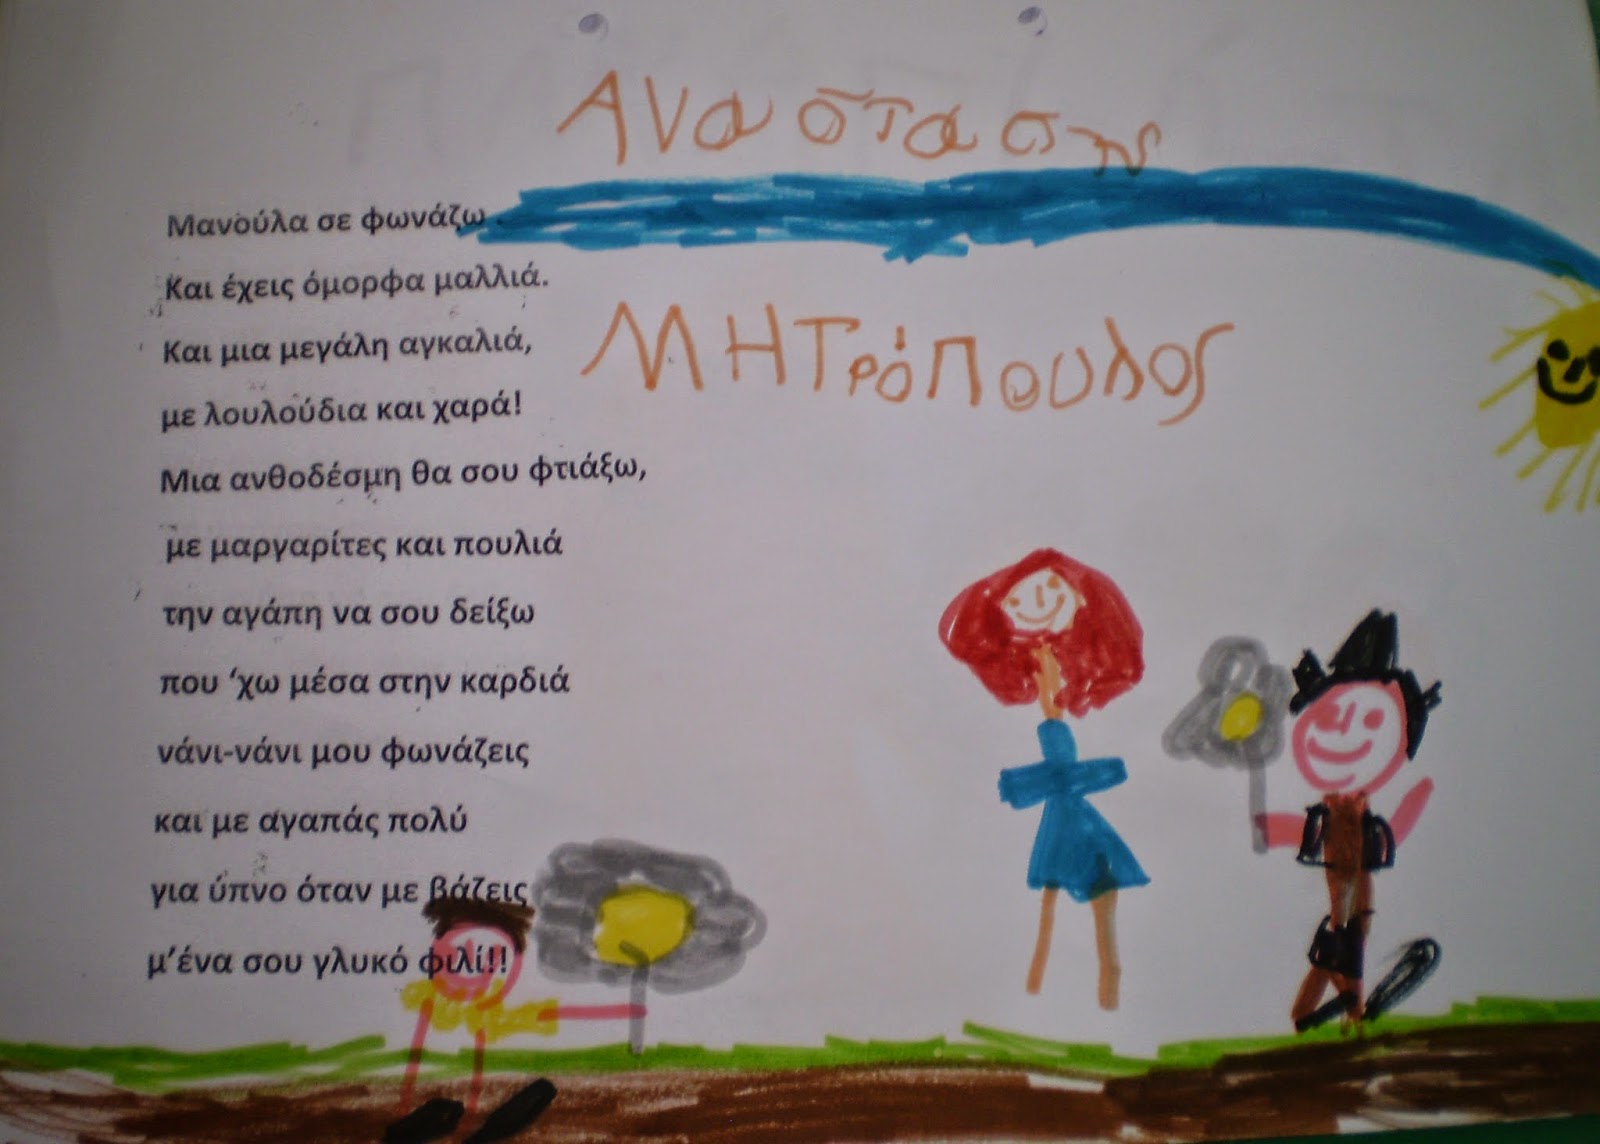 Αναστασης
Μητρόπουλος
Μανούλα σε φωνάζω
Και έχεις όμορφα μαλλιά.
Και μια μεγάλη αγκαλιά,
με λουλούδια και χαρά!
Μια ανθοδέσμη θα σου φτιάξω,
με μαργαρίτες και πουλιά
την αγάπη να σου δείξω
που ‘χω μέσα στην καρδιά
νάνι-νάνι μου φωνάζεις
και με αγαπάς πολύ
για ύπνο όταν με βάζεις
μ’ένα σου γλυκό φιλί!!